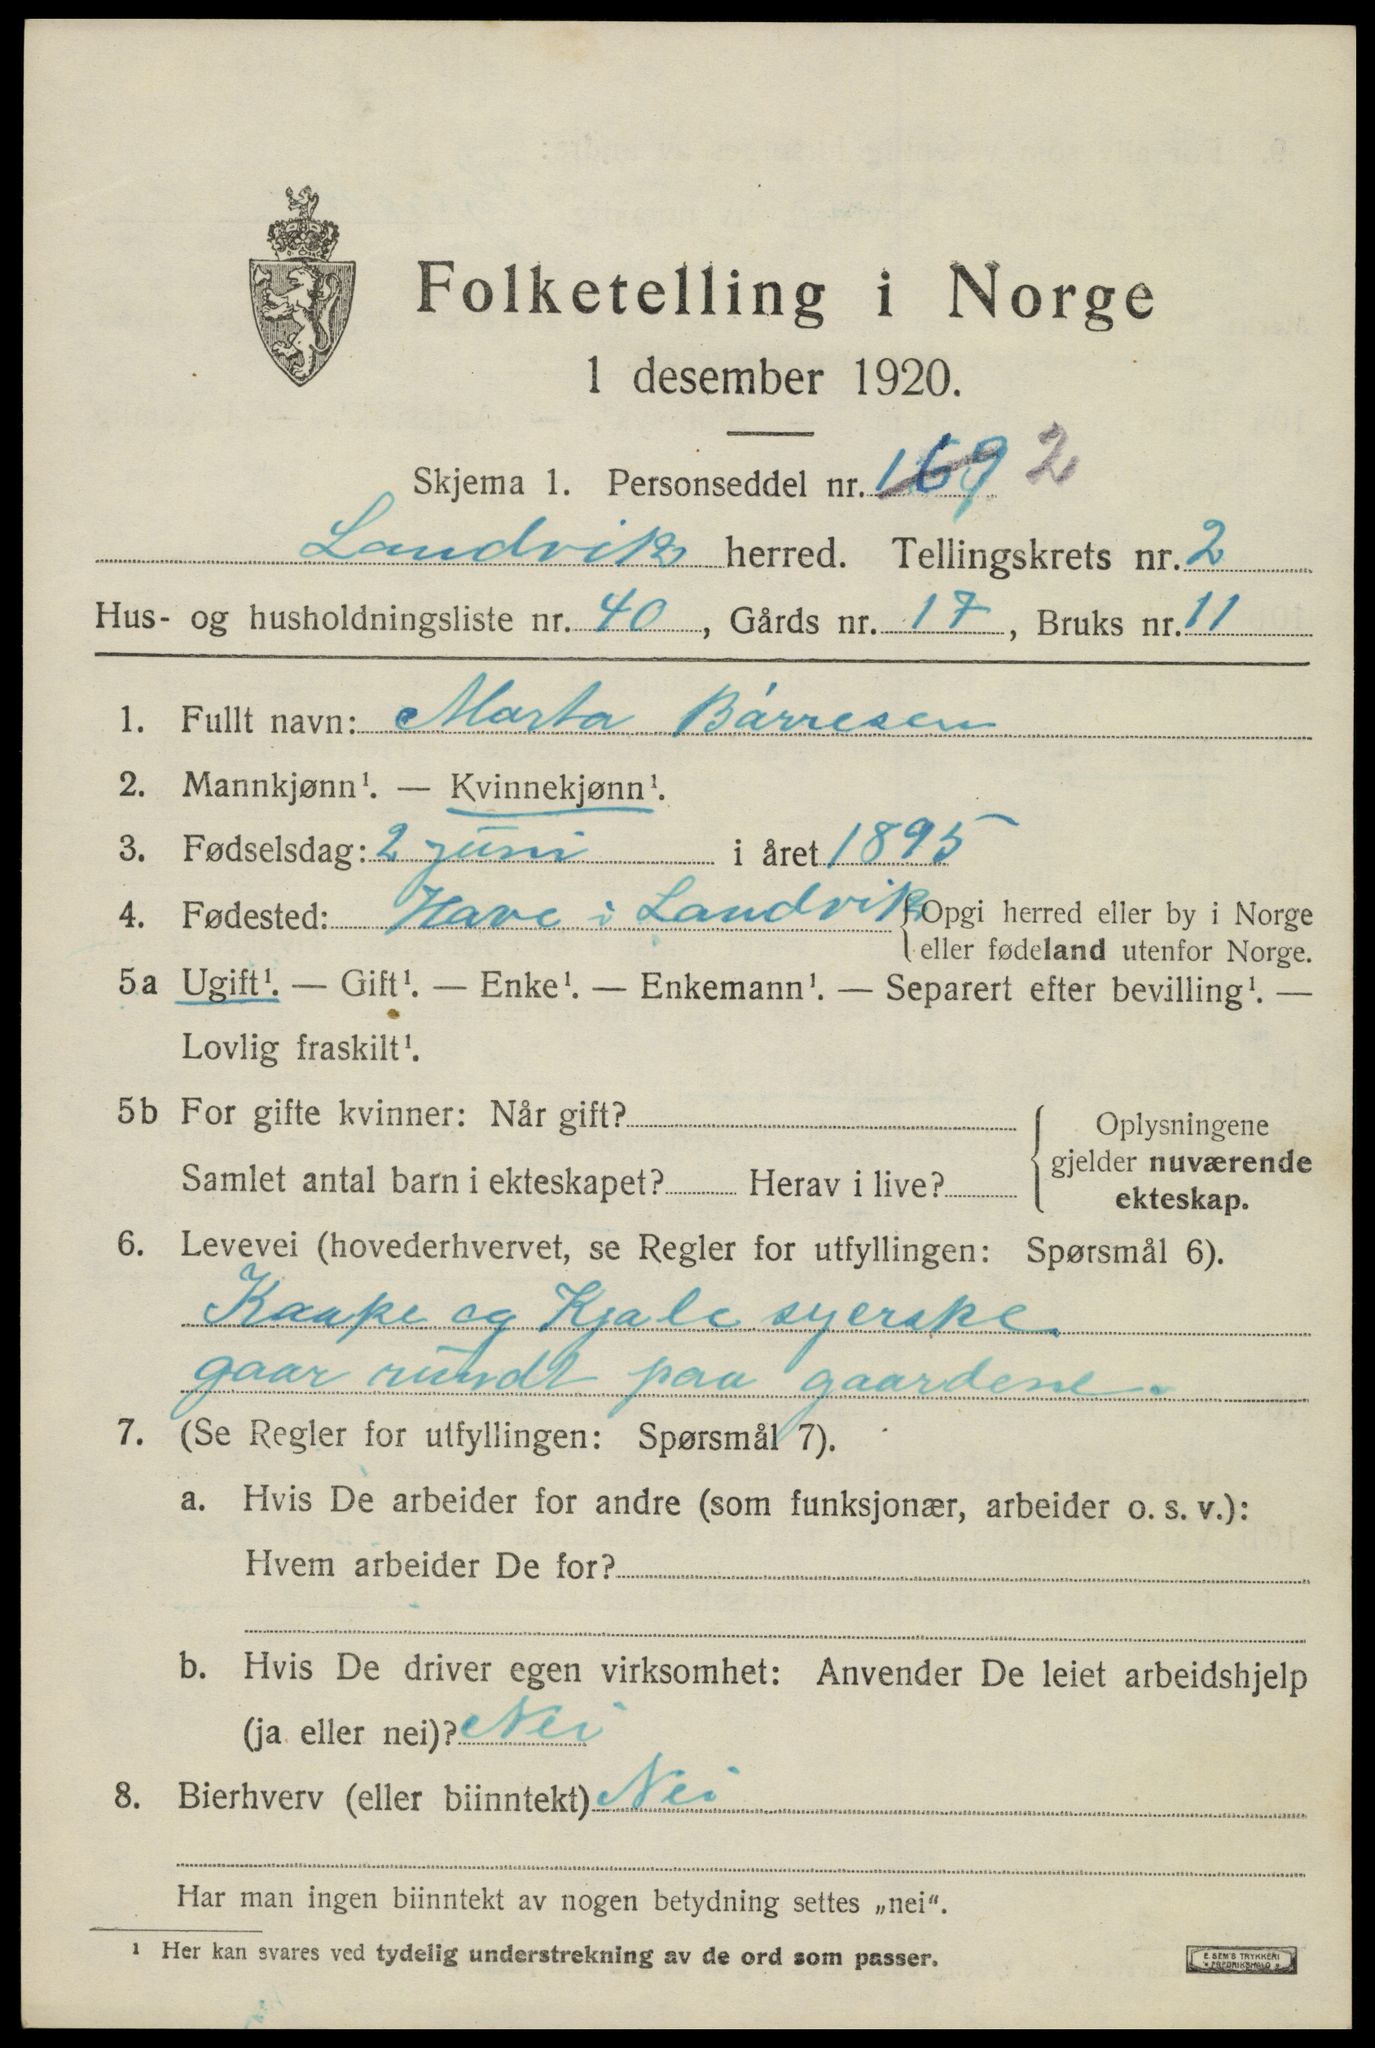 Folketelling i Norge
1 desember 1920.
Skjema 1. Personseddel nr. 169 2
Landvik herred. Tellingskrets nr. 2
Hus- og husholdningsliste nr. 40, Gårds nr. 17, Bruks nr. 11
1. Fullt navn: Marta Bárresen
2. Mannkjønn¹. — Kvinnekjønn¹.
3. Fødselsdag: 2 juni i året 1895
4. Fødested: Have i Landvik {Opgi herred eller by i Norge
eller fødeland utenfor Norge.
5a Ugift¹. — Gift¹. — Enke¹. — Enkemann¹. — Separert efter bevilling¹. —
Lovlig fraskilt¹.
5b For gifte kvinner: Når gift?
Samlet antal barn i ekteskapet? Herav i live?
Oplysningene
gjelder nuværende
ekteskap.
6. Levevei (hovederhvervet, se Regler for utfyllingen: Spørsmål 6).
Kaape og Kjole syerske
gaar rundt paa gaardene.
7. (Se Regler for utfyllingen: Spørsmål 7).
a. Hvis De arbeider for andre (som funksjonær, arbeider o. s. v.):
Hvem arbeider De for?
b. Hvis De driver egen virksomhet: Anvender De leiet arbeidshjelp
(ja eller nei)? Nei
8. Bierhverv (eller biinntekt) Nei
Har man ingen biinntekt av nogen betydning settes „nei“.
¹ Her kan svares ved tydelig understrekning av de ord som passer.
E. SEM'S TRYKKERI
FREDRIKSHALD